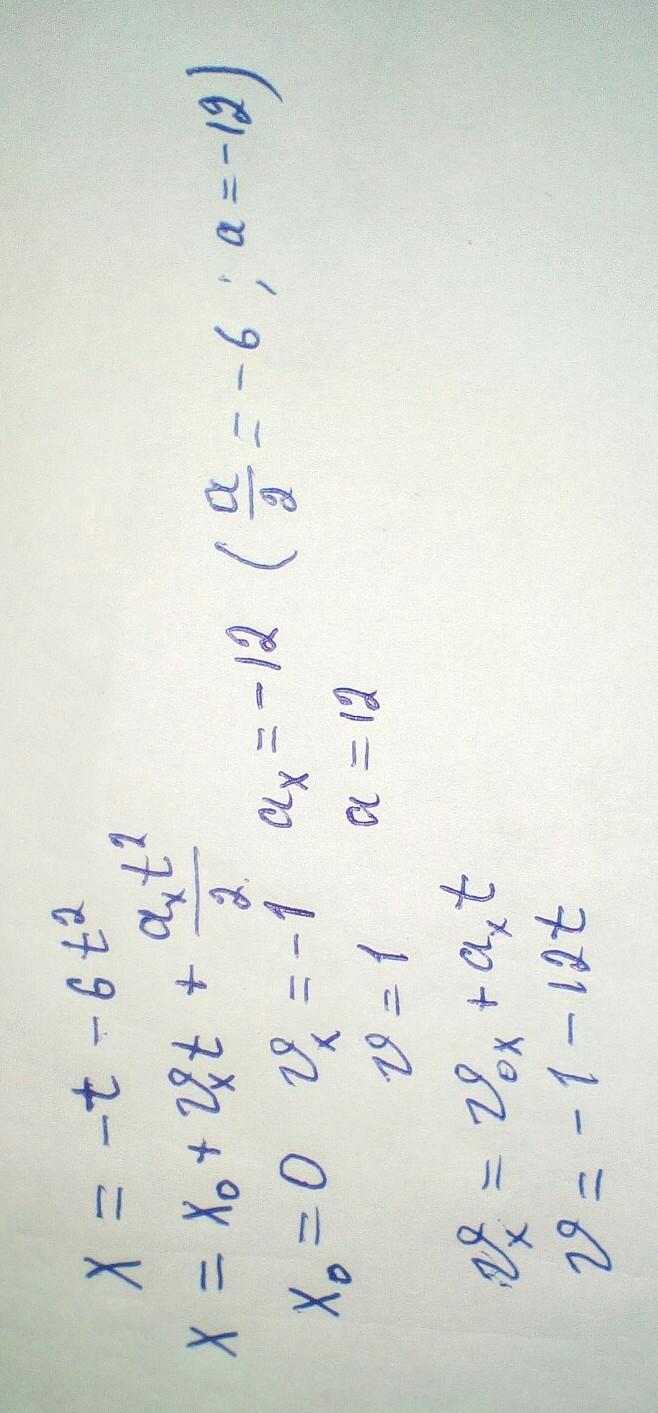 x = -t - 6t²
x = x₀ + υₓt + aₓt²/2
x₀ = 0 υₓ = -1 aₓ = -12 (a/2 = -6; a = -12)
υ = 1 a = 12
υₓ = υ₀ₓ + aₓt
υ = -1 - 12t